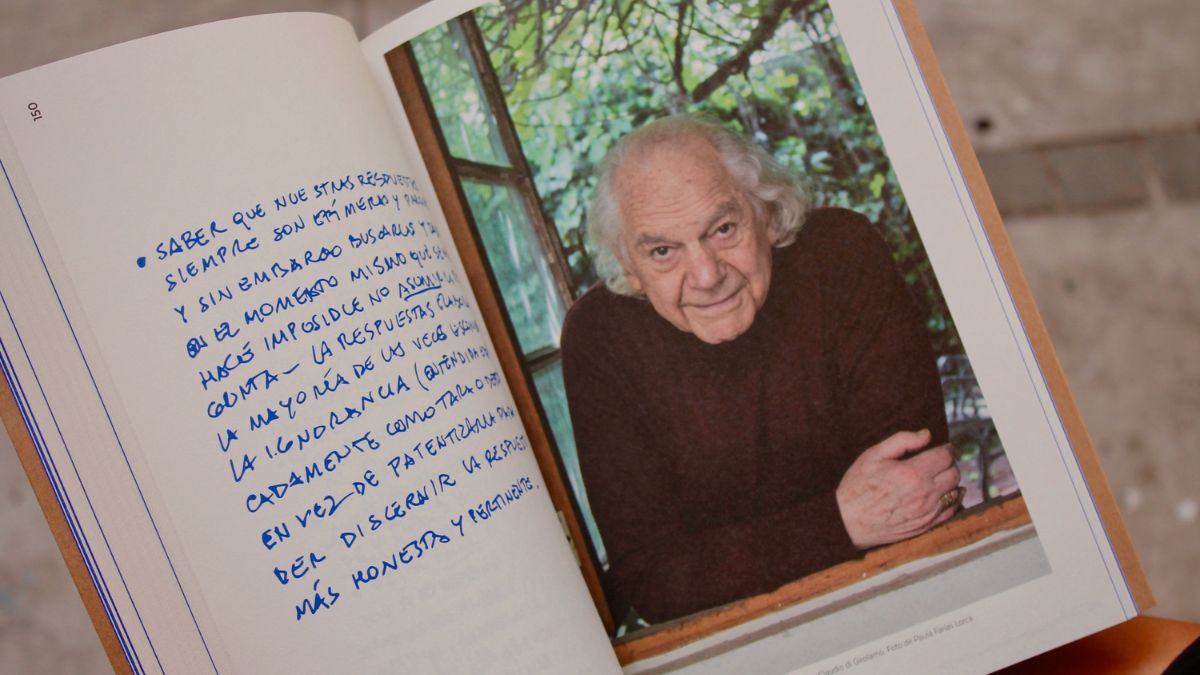 150
• SABER QUE NUESTRAS RESPUESTAS
SIEMPRE SON EFÍMERAS Y
Y SIN EMBARGO BUSCARLAS Y
EN EL MOMENTO MISMO QUE SE
HACE IMPOSIBLE NO ASUMIR LA
LA RESPUESTAS
LA MAYORÍA DE LAS VECES
LA IGNORANCIA (ENTENDIDA
CADAMENTE COMO TARA O
EN VEZ DE PATENTIZARLA PARA
DER DISCERNIR LA RESPUESTA
MÁS HONESTA Y PERTINENTE.
Claudio di Girolamo. Foto de Paula Farías Lorca